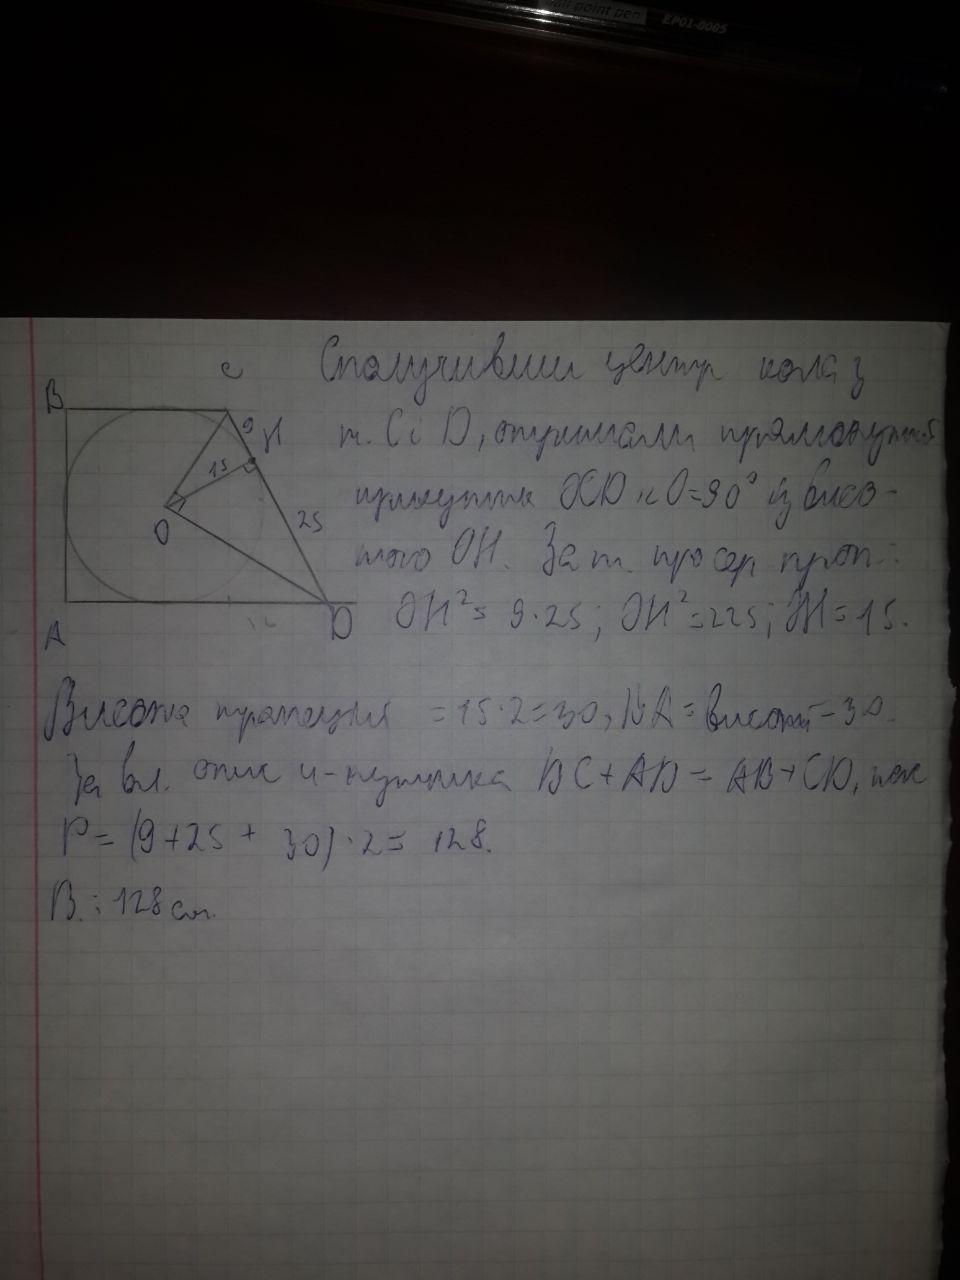 ball point pen EP01-0005
B
C
Сполучивши центр кола з
9 H
т. C і D, отримали прямокутний
15
трикутник OCD к O=90° із висо-
25
O
тою OH. За т. про сер. проп.:
A
D
OH²= 9·25; OH²=225; OH=15.
Висота трапеції =15·2=30, BA= висоті=30.
За вл. опис ч-кутника BC+AD= AB+CD, тож
P= (9+25+ 30)·2= 128.
В.: 128 см.